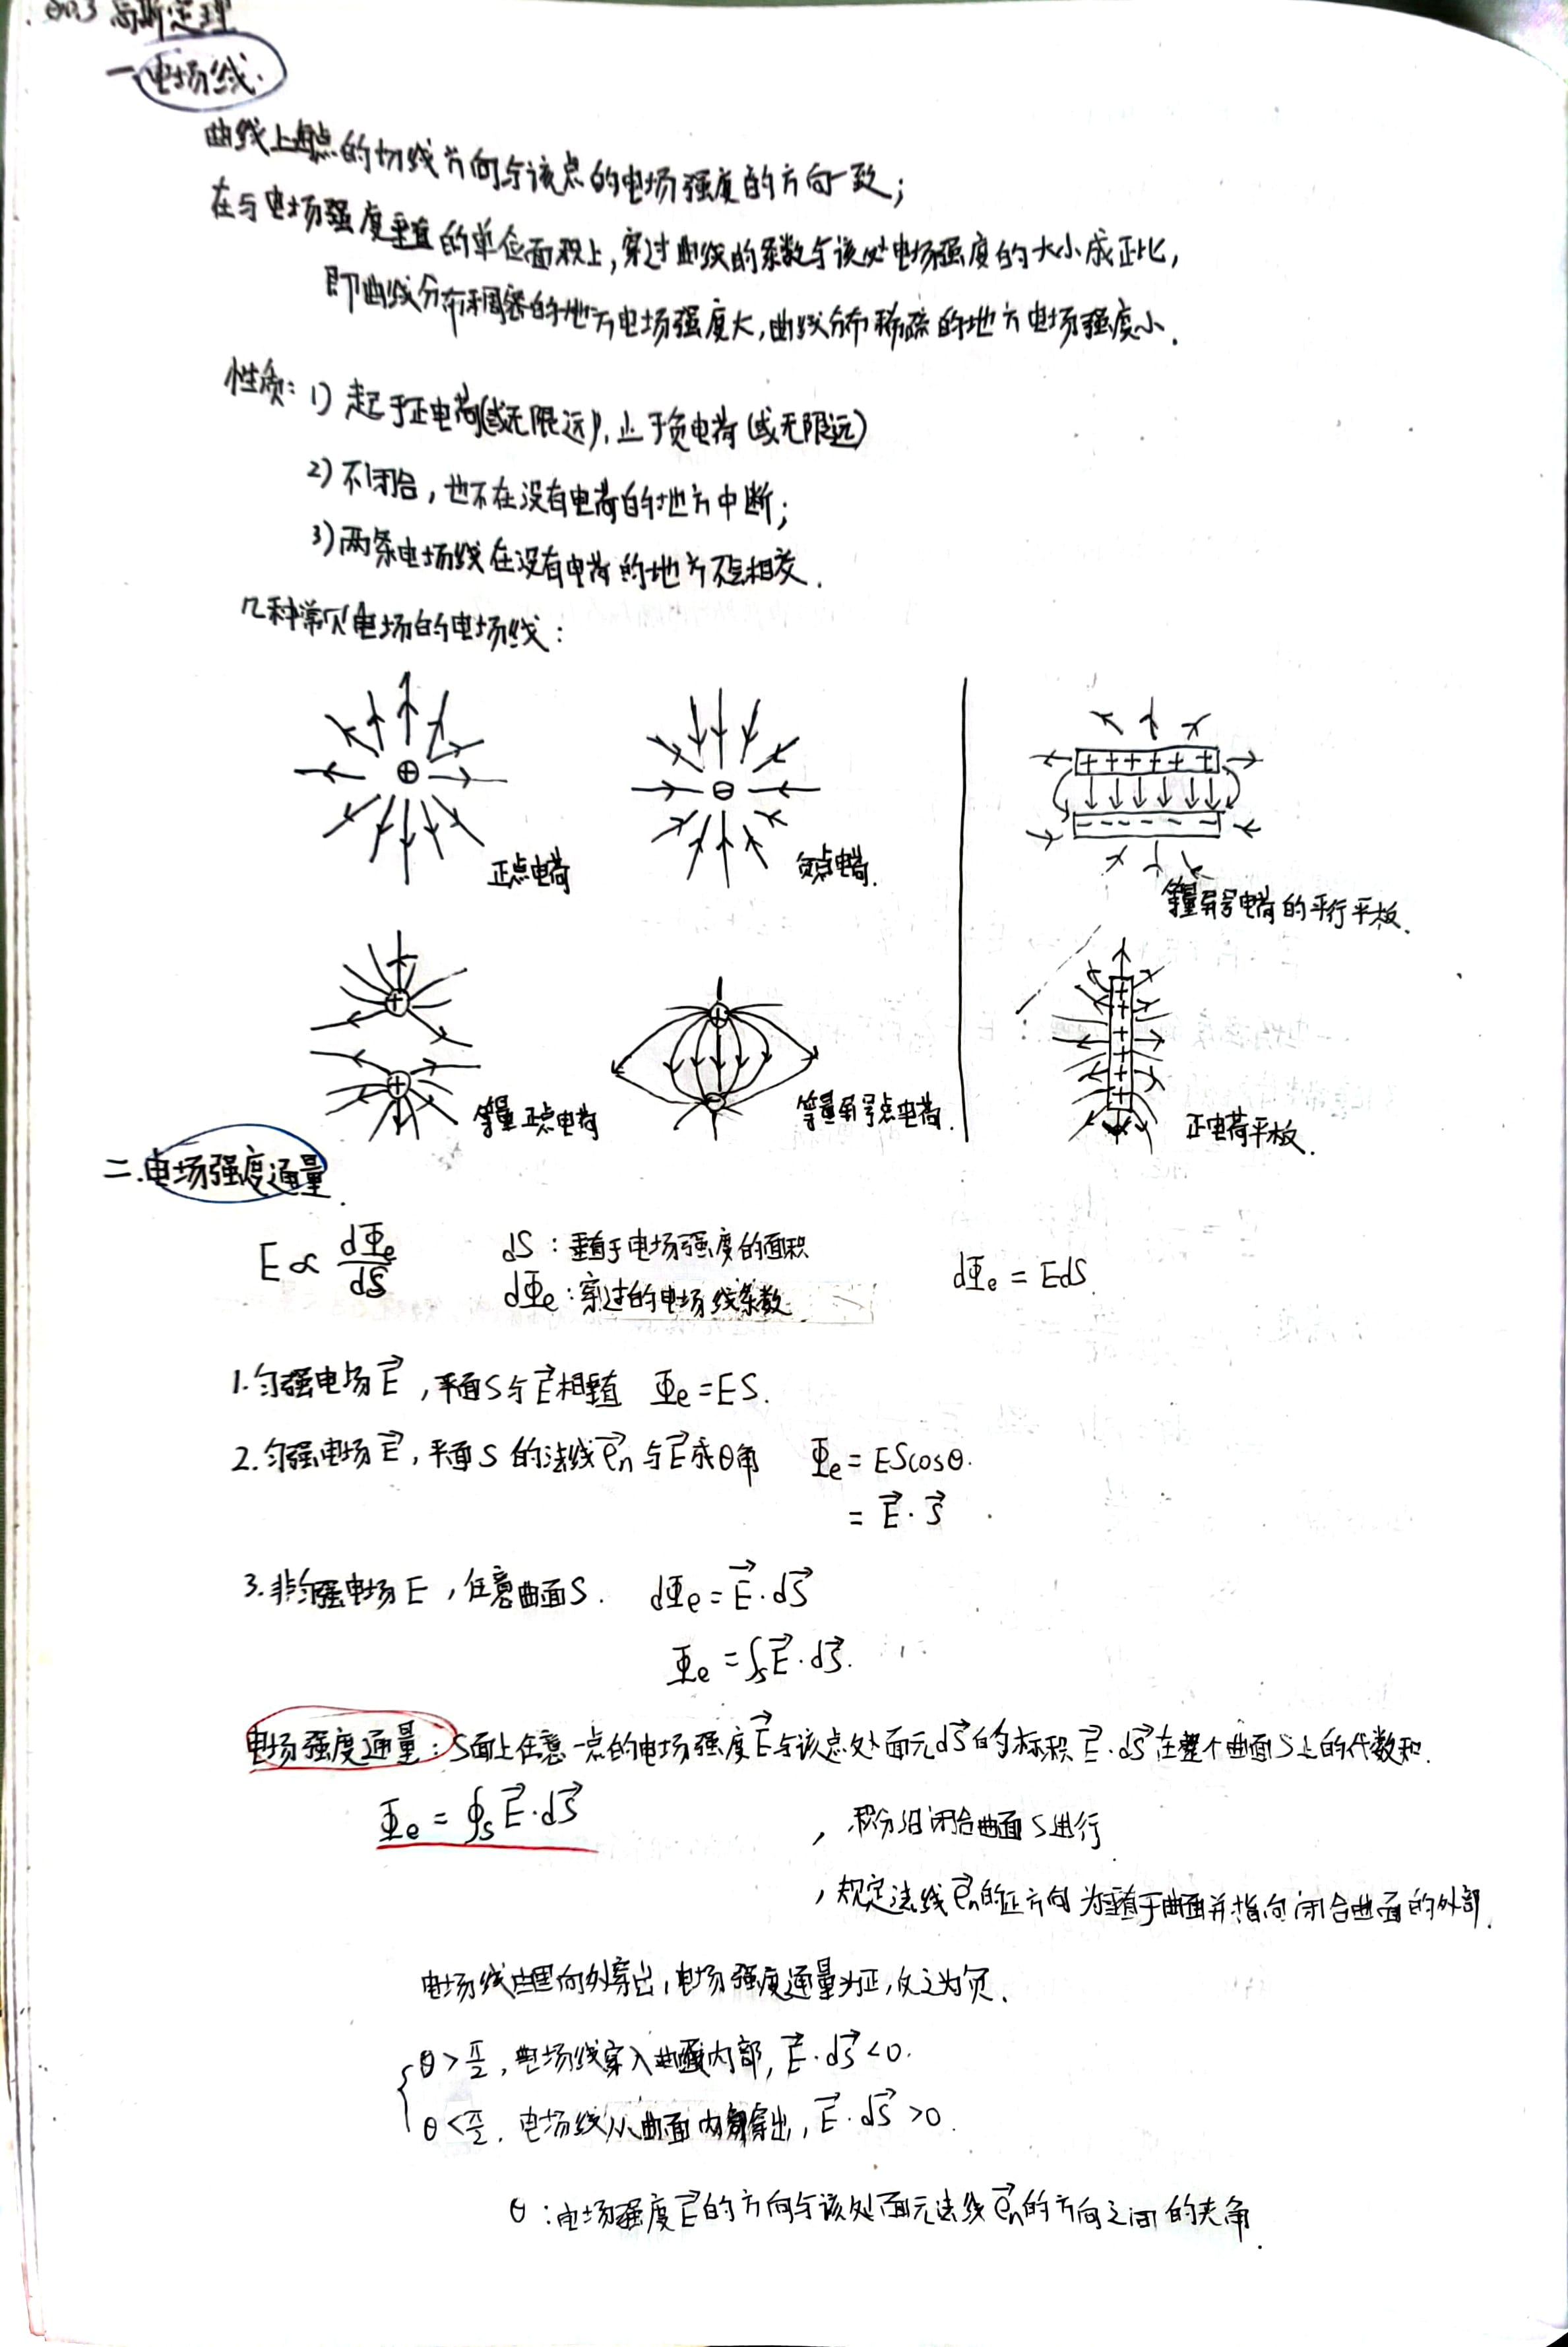 高斯定理
一.电场线.
曲线上每点的切线方向与该点的电场强度的方向一致;
在与电场强度垂直的单位面积上,穿过曲线的条数与该处电场强度的大小成正比,
即曲线分布稠密的地方电场强度大,曲线分布稀疏的地方电场强度小.
性质: 1) 起于正电荷(或无限远),止于负电荷(或无限远)
2) 不闭合,也不在没有电荷的地方中断;
3) 两条电场线在没有电荷的地方不会相交.
几种常见电场的电场线:
正点电荷
负点电荷.
等量异号电荷的平行平板.
等量正点电荷
等量异号点电荷.
正电荷平板.
二.电场强度通量.
E ∝ dΦe/dS
dS : 垂直于电场强度的面积
dΦe : 穿过的电场线条数.
dΦe = EdS.
1.匀强电场E⃗,平面S与E⃗相垂直 Φe = ES.
2.匀强电场E⃗,平面S的法线e⃗n与E⃗成θ角 Φe = EScosθ.
= E⃗·S⃗
3.非匀强电场E,任意曲面S. dΦe = E⃗·dS⃗
Φe = ∫s E⃗·dS⃗.
电场强度通量: S面上任意一点的电场强度E⃗与该点处面元dS⃗的标积E⃗·dS⃗在整个曲面S上的代数和.
Φe = ∮s E⃗·dS⃗
, 积分沿闭合曲面S进行
, 规定法线e⃗n的正方向为垂直于曲面并指向闭合曲面的外部.
电场线由里向外穿出,电场强度通量为正,反之为负.
θ > π/2, 电场线穿入曲面内部, E⃗·dS⃗ < 0.
θ < π/2. 电场线从曲面内部穿出, E⃗·dS⃗ > 0.
θ : 电场强度E⃗的方向与该处面元法线e⃗n的方向之间的夹角.